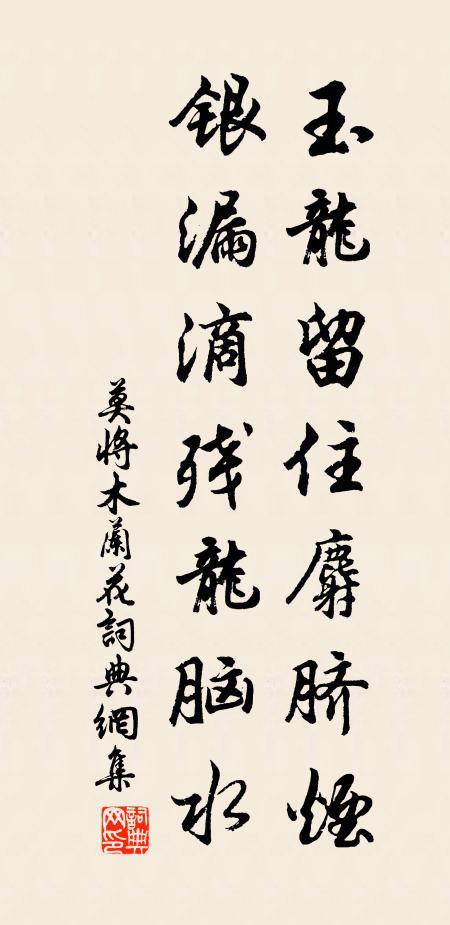 玉龍留住麝脐煙
銀漏滴残龍脑水
莫將木蘭花詞典網集
詞典網印